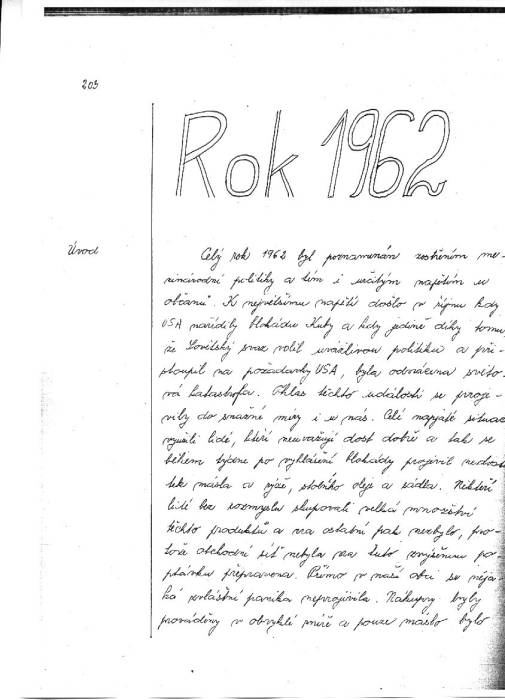 203
Rok 1962
Úvod
Celý rok 1962 byl poznamenán zostřením me-
zinárodní politiky a tím i určitým napětím u
občanů. K největšímu napětí došlo v říjnu kdy
USA nařídily blokádu Kuby a kdy jedině díky tomu,
že Sovětský svaz volil uvážlivou politiku a při-
stoupil na požadavky USA, byla odvrácena světo-
vá katastrofa. Ohlas těchto událostí se proje-
vily do značné míry i u nás. Celé napjaté situace
využili lidé, kteří neuvažují dost dobře a tak se
během týdne po vyhlášení blokády projevil nedosta-
tek másla a rýže, stolního oleje a sádla. Někteří
lidé bez rozmyslu skupovali velká množství
těchto produktů a na ostatní pak nezbylo, pro-
tože obchodní síť nebyla na tuto zvýšenou po-
ptávku připravena. Přímo v naší obci se něja-
ká zvláštní panika neprojevila. Nákupy byly
prováděny v obvyklé míře a pouze máslo bylo